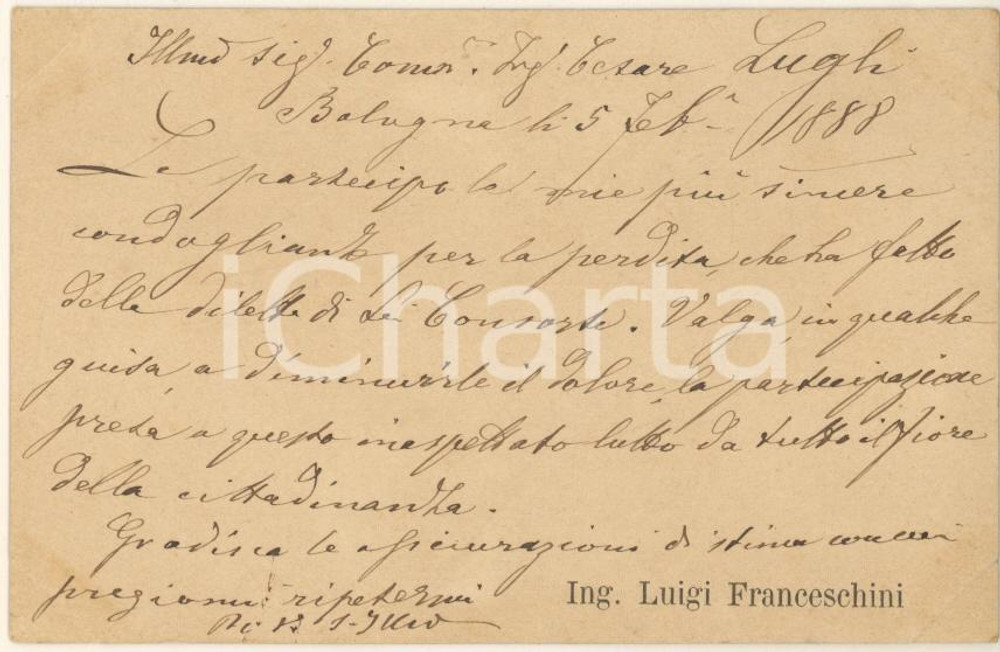 Illmo Sig. Comm. Ing. Cesare Lugli
Bologna li 5 Feb. 1888
Le partecipo le mie più sincere
condoglianze per la perdita, che ha fatto
della diletta di Lei Consorte. Valga, in qualche
guisa, a diminuirle il dolore, la partecipazione
presa a questo inaspettato lutto da tutto il fiore
della cittadinanza.
Gradisca le assicurazioni di stima con cui
pregiomi ripetermi
Di V. S. Illma
Ing. Luigi Franceschini
iCharta